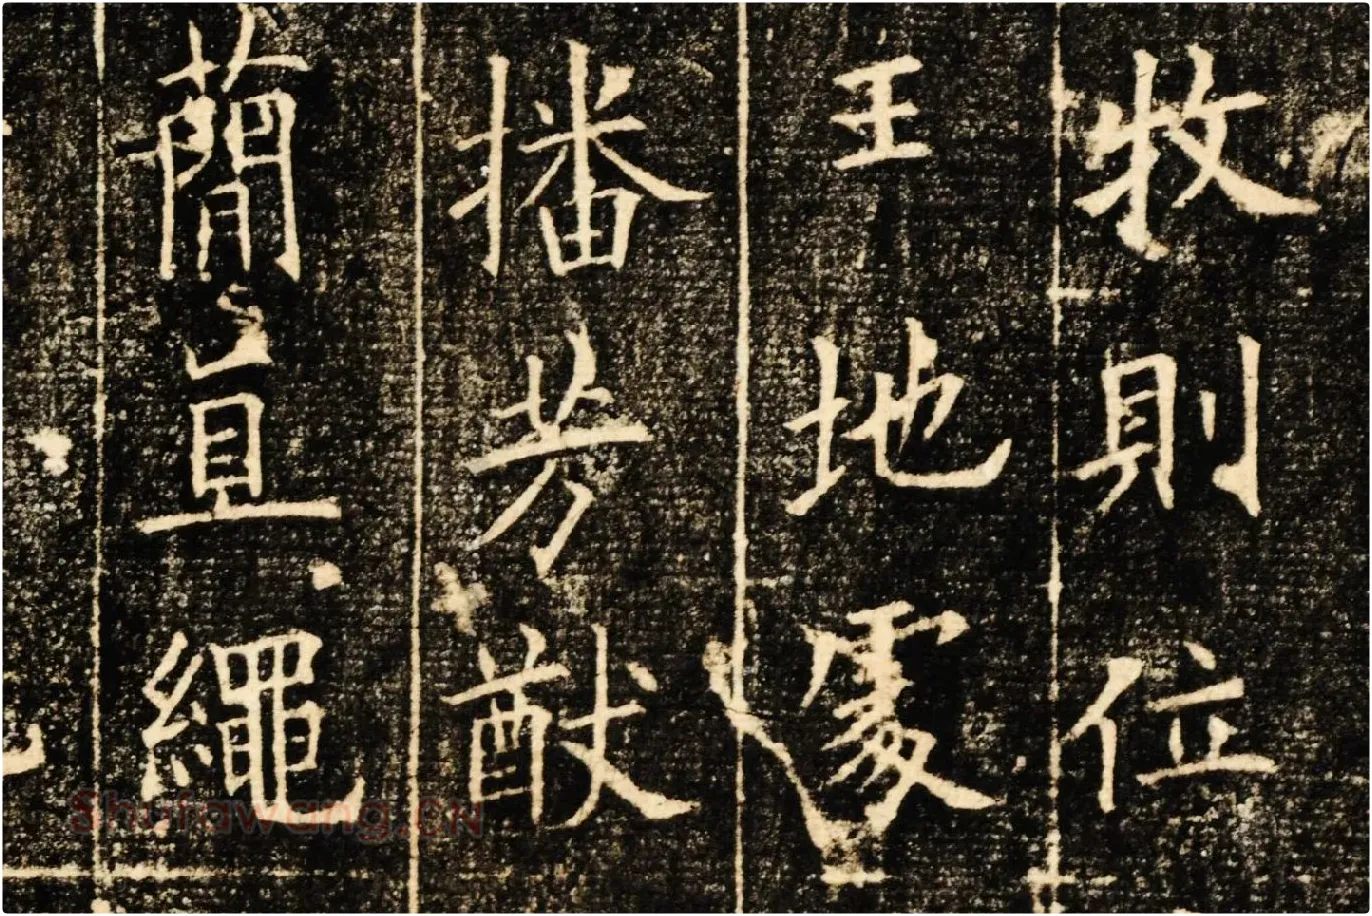 牧則位
王地處
播芳猷
蕳直繩
Shufawang.CN